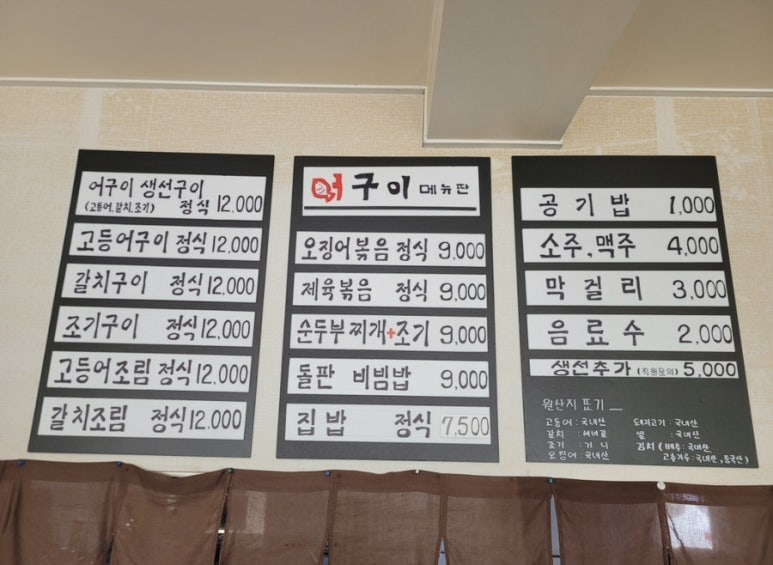 어구이 생선구이
(고등어, 갈치, 조기) 정식 12,000
고등어구이 정식 12,000
갈치구이 정식 12,000
조기구이 정식 12,000
고등어조림 정식 12,000
갈치조림 정식 12,000
어구이 메뉴판
오징어볶음 정식 9,000
제육볶음 정식 9,000
순두부찌개+조기 9,000
돌판 비빔밥 9,000
집밥 정식 7,500
공기밥 1,000
소주, 맥주 4,000
막걸리 3,000
음료수 2,000
생선추가 (직원문의) 5,000
원산지 표기
고등어 : 국내산 돼지고기 : 국내산
갈치 : 세네갈 쌀 : 국내산
조기 : 기니 김치 (배추 : 국내산
오징어 : 국내산 고추가루 : 국내산, 중국산)